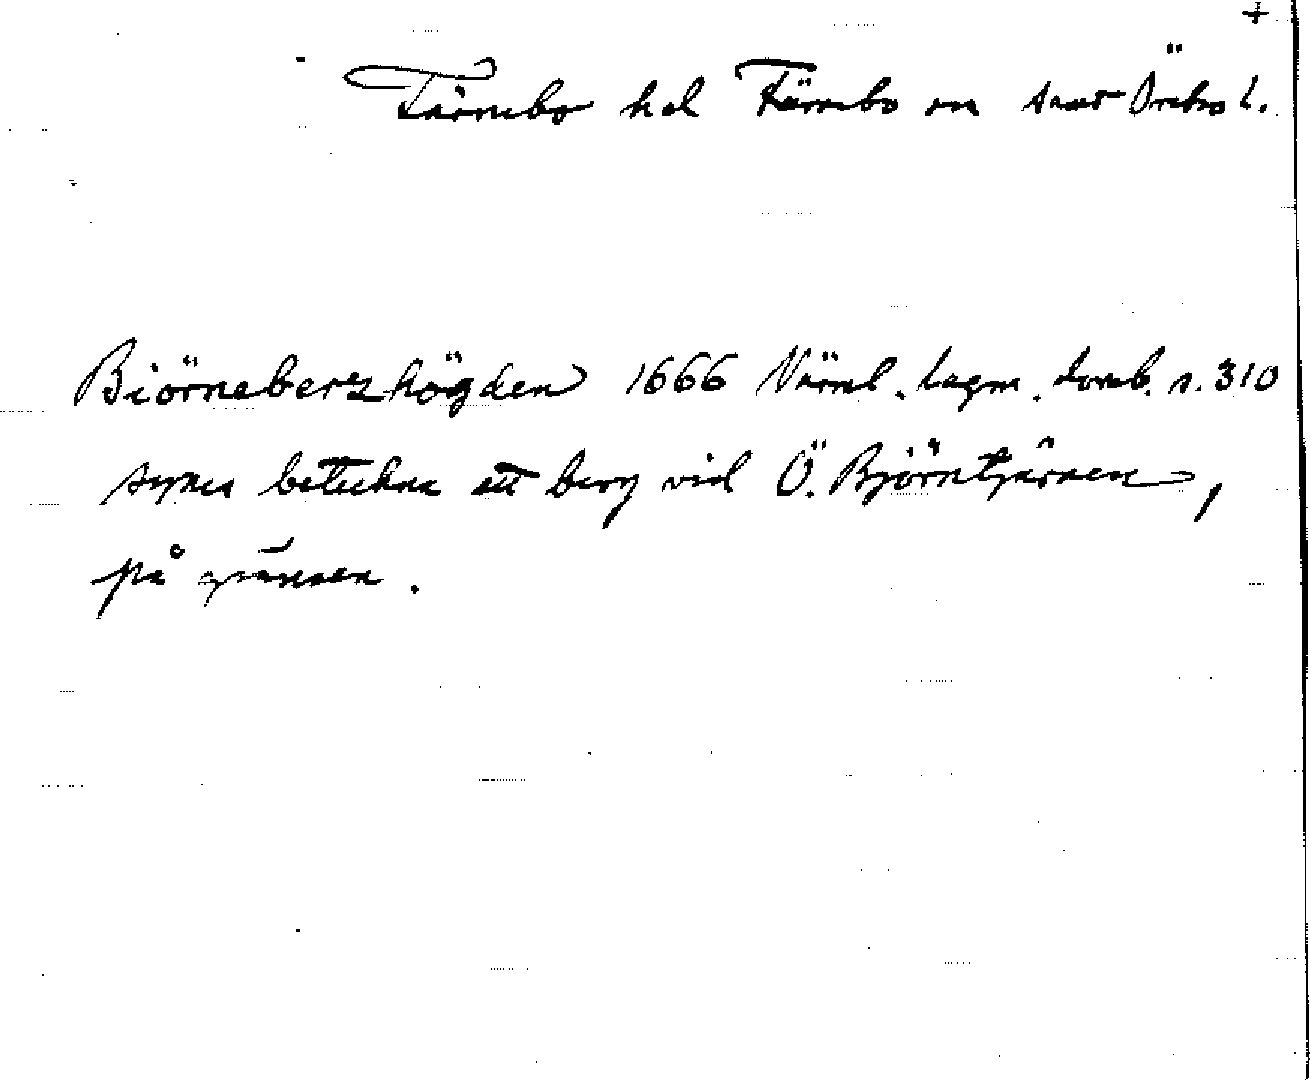 +
Färnebo hd Färnebo sn samt Örebro l.
Biörneberszhögden 1666 Värml. lagm. domb. s. 310
synes beteckna ett berg vid Ö. Björntjärnen,
på gränsen.